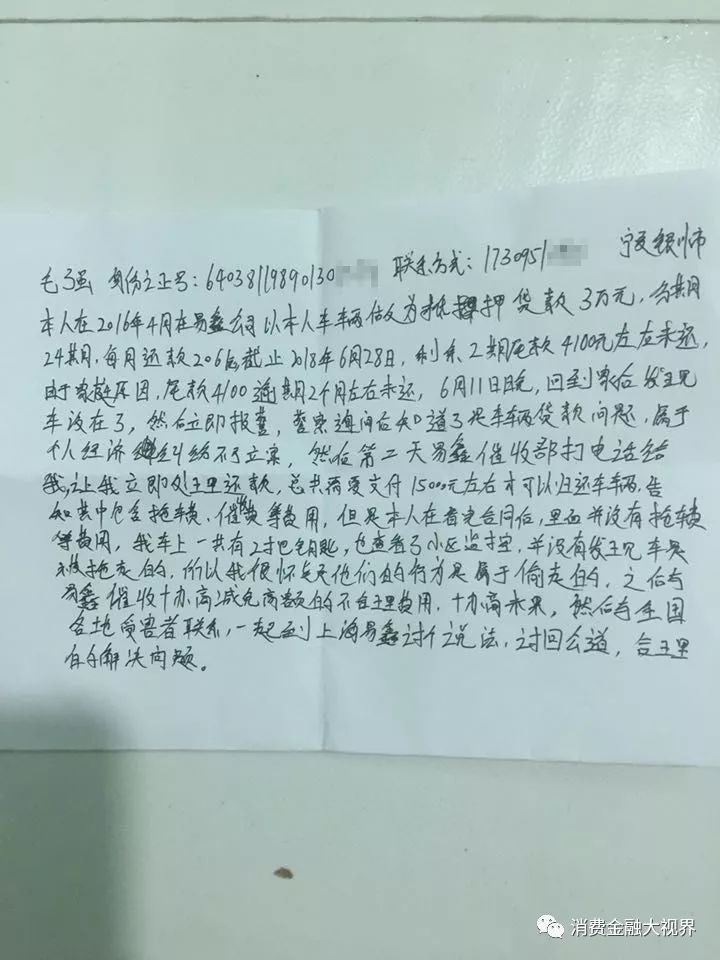 毛强 身份证号：64038119890130 联系方式：1730951 宁夏银川市
本人在2016年4月在易鑫公司以本人车车辆估价为抵押贷款3万元，分期
24期，每月还款206 截止2018年6月28日，剩余2期尾款4100元左右未还，
由于家庭原因，尾款4100逾期2个月左右未还，6月11日晚，回到家后发现
车没在了，然后立即报警，警察询问后知道了是车辆贷款问题，属于
个人经济纠纷不予立案，然后第二天易鑫催收部打电话给
我，让我立即处理还款，总共需要支付15000元左右才可以归还车辆，告
知其中包含拖车费、催收费等费用，但是本人在看完合同后，里面并没有拖车费
等费用，我车上一共有2把钥匙，也查看了小区监控，并没有发现车是
被拖走的，所以我很怀疑他们的行为是属于偷走的，之后与
易鑫催收协商减免高额的不合理费用，协商未果，然后与全国
各地受害者联系，一起到上海易鑫讨个说法，讨回公道，合理
的解决问题。
消费金融大视界